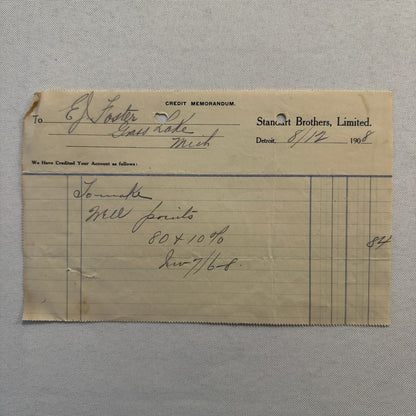 CREDIT MEMORANDUM.
To EJ Foster
Grass Lake
Mich
Standart Brothers, Limited.
Detroit, 8/12 1908
We Have Credited Your Account as follows:
To make
Well points
80 + 10%
Inv 7/6-8. 84